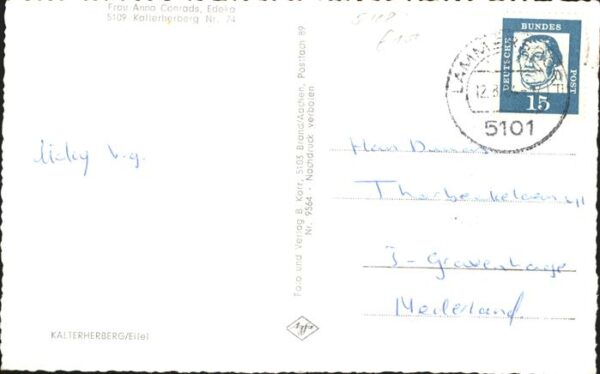 Frau Anna Conrads, Edeka
5109 Kalterherberg Nr. 74
DEUTSCHE BUNDES POST
15
LAMMERS
12.8.
5101
Foto und Verlag B. Korr, 5103 Brand/Aachen, Postfach 89
Nr. 9564 - Nachdruck verboten
Agfa
KALTERHERBERG/Eifel
Thorbeckelaan
S-Gravenhage
Nederland